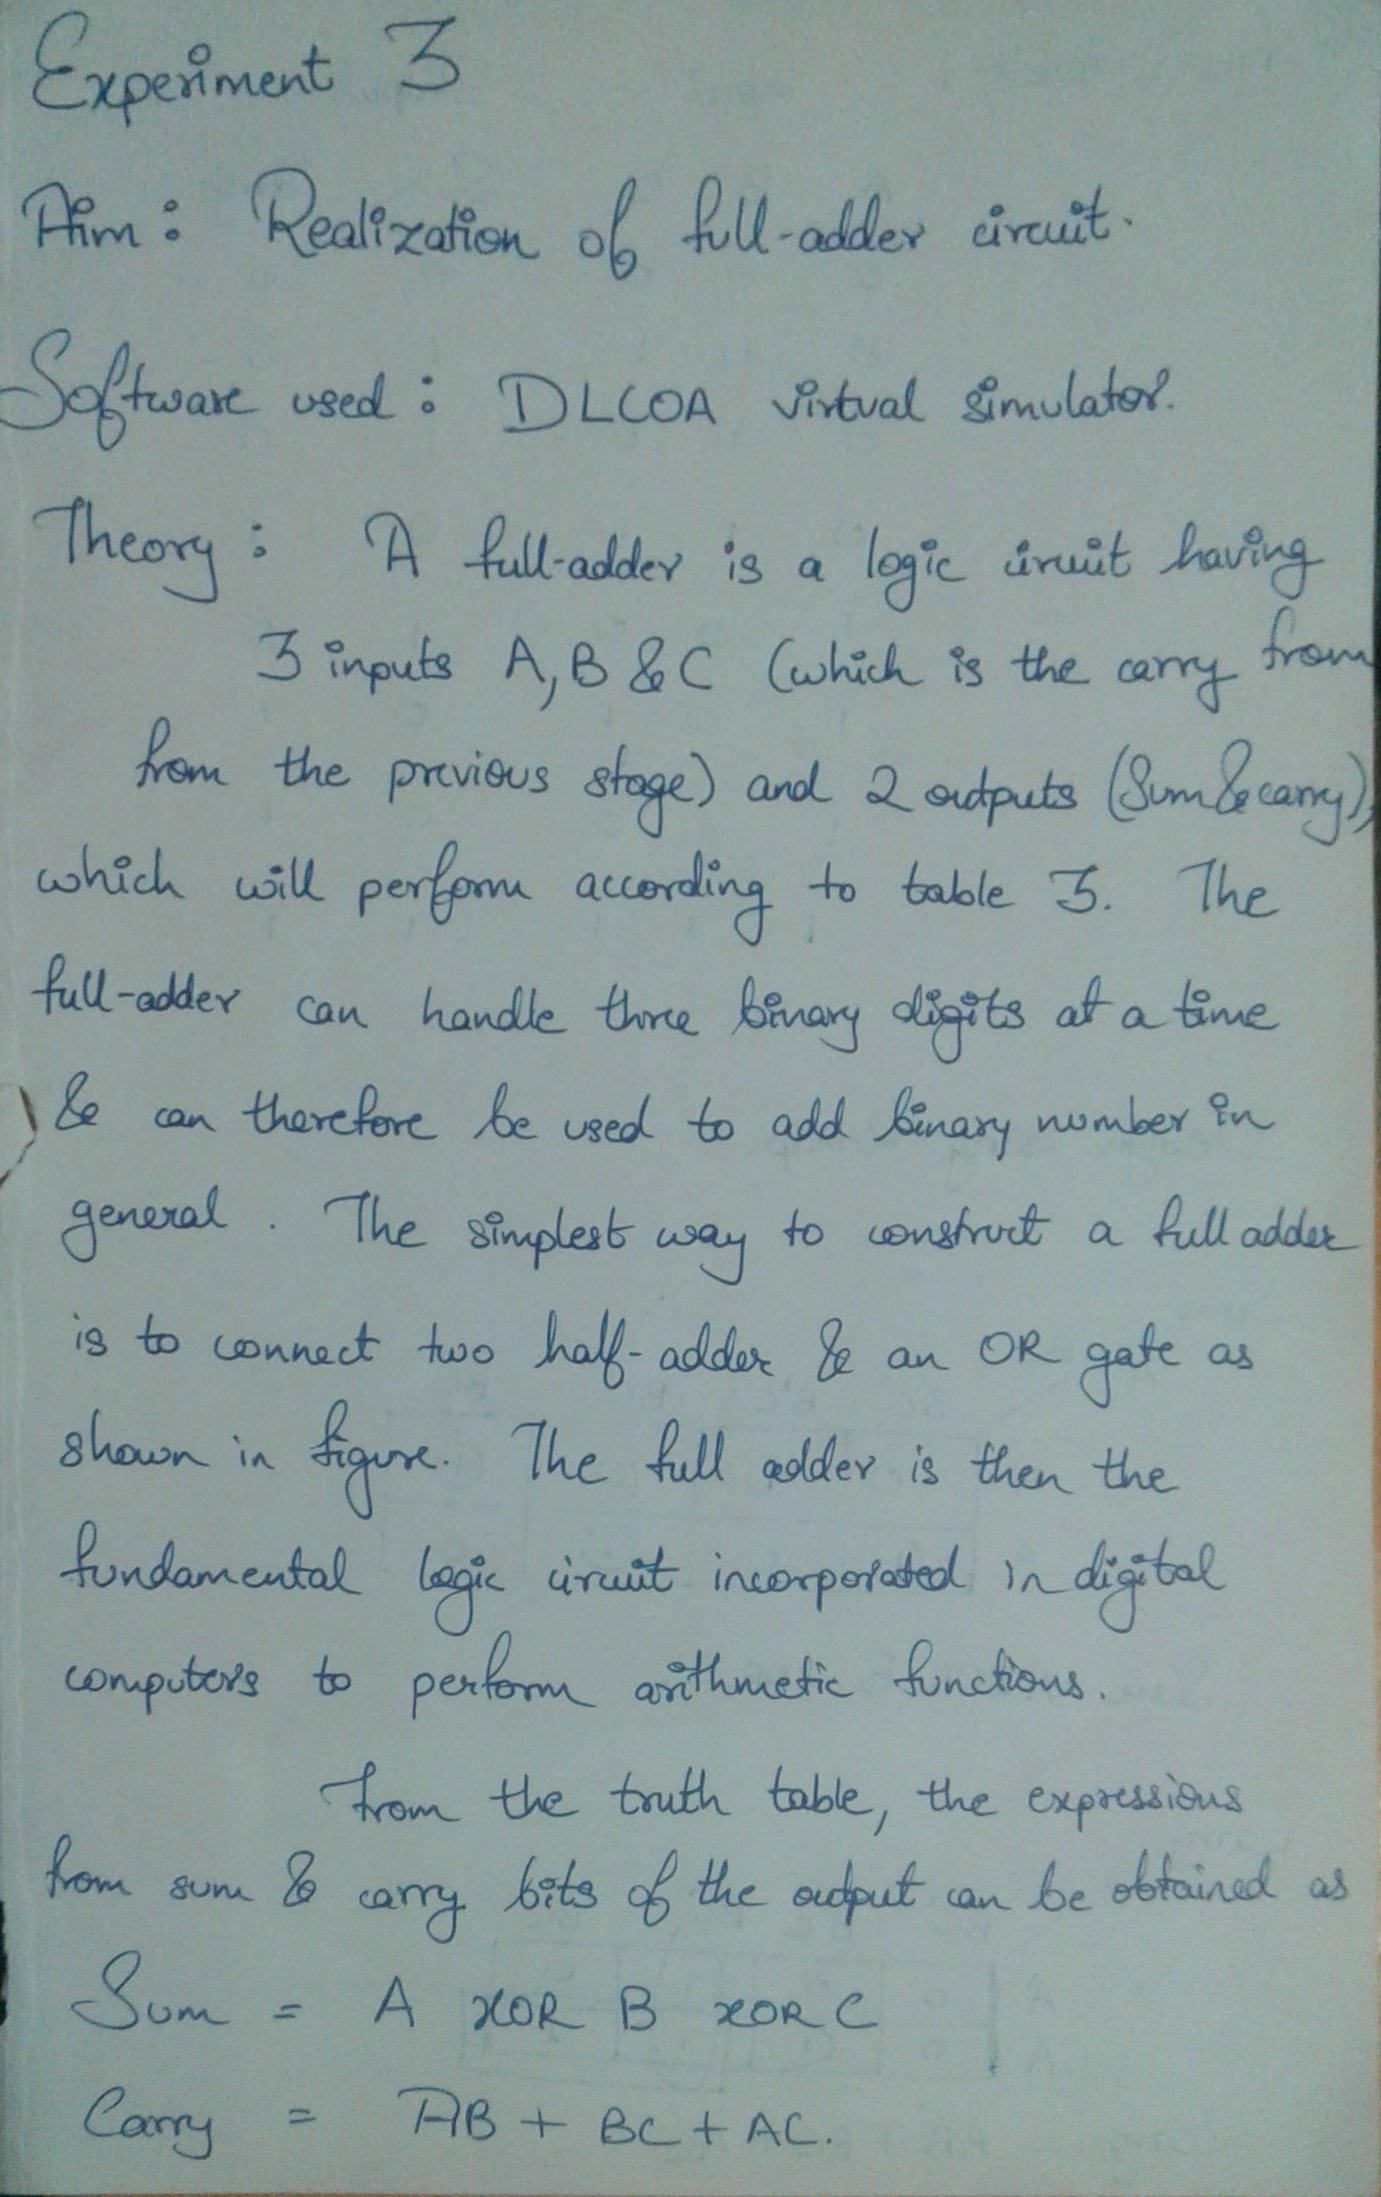 Experiment 3
Aim: Realization of full-adder circuit.
Software used: DLCOA virtual simulator.
Theory: A full-adder is a logic circuit having
3 inputs A, B & C (which is the carry from
from the previous stage) and 2 outputs (Sum & carry),
which will perform according to table 3. The
full-adder can handle three binary digits at a time
& can therefore be used to add binary number in
general. The simplest way to construct a full adder
is to connect two half-adder & an OR gate as
shown in figure. The full adder is then the
fundamental logic circuit incorporated in digital
computers to perform arithmetic functions.
From the truth table, the expressions
from sum & carry bits of the output can be obtained as
Sum = A XOR B XOR C
Carry = AB + BC + AC.